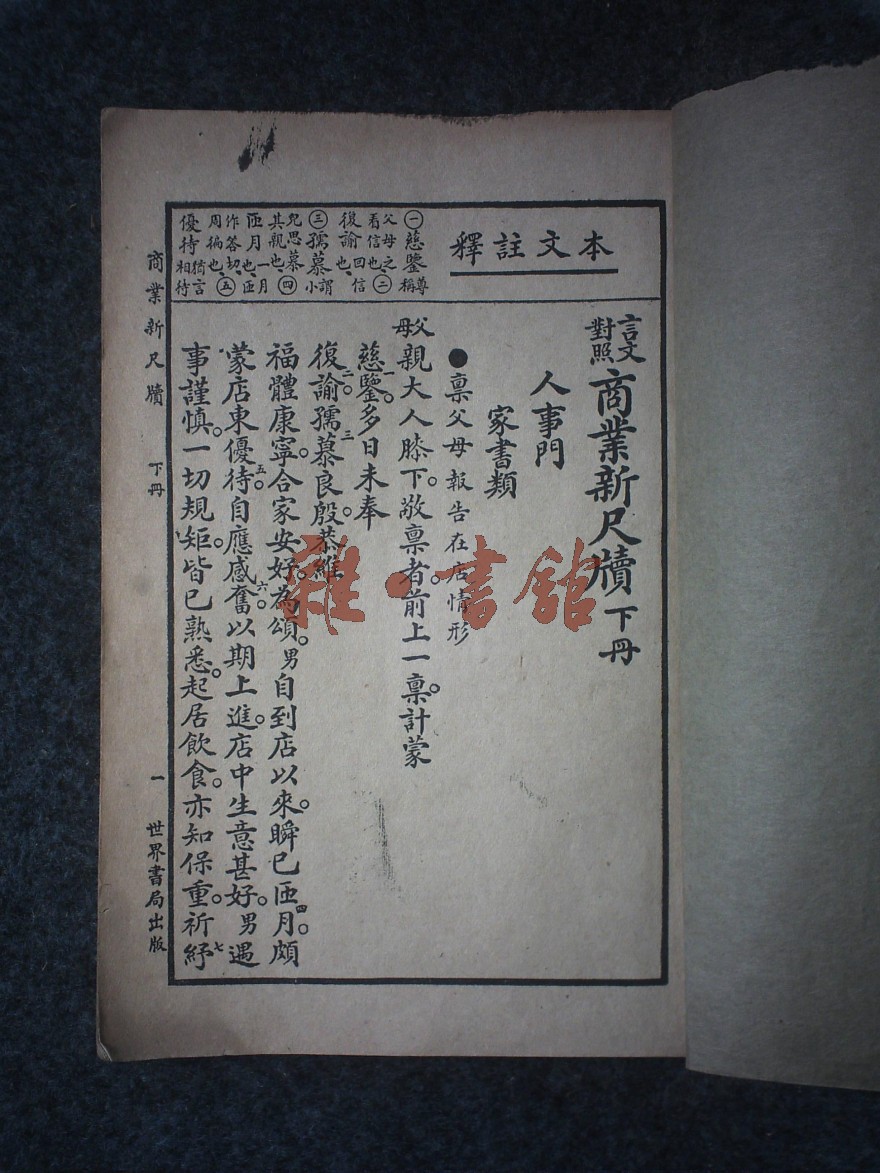 本文註釋
㊀慈鑒尊稱
父母之看信也㊁
復諭回信也
㊂孺慕謂小
兒思慕其親也㊃
匝月一月也匝
作答切周徧也㊄
優待猶言相待
言文對照商業新尺牘下冊
人事門
家書類
●稟父母報告在店情形
父母親大人膝下。敬稟者。前上一稟。計蒙
慈鑒一。多日未奉
復諭二。孺慕三良殷。恭維
福體康寧。合家安好。為頌。男自到店以來。瞬已匝月四。頗
蒙店東優待五。自應感奮六。以期上進。店中生意甚好。男遇
事謹慎。一切規矩。皆已熟悉。起居飲食。亦知保重。祈紓七
商業新尺牘 下冊 一 世界書局出版
雜·書館